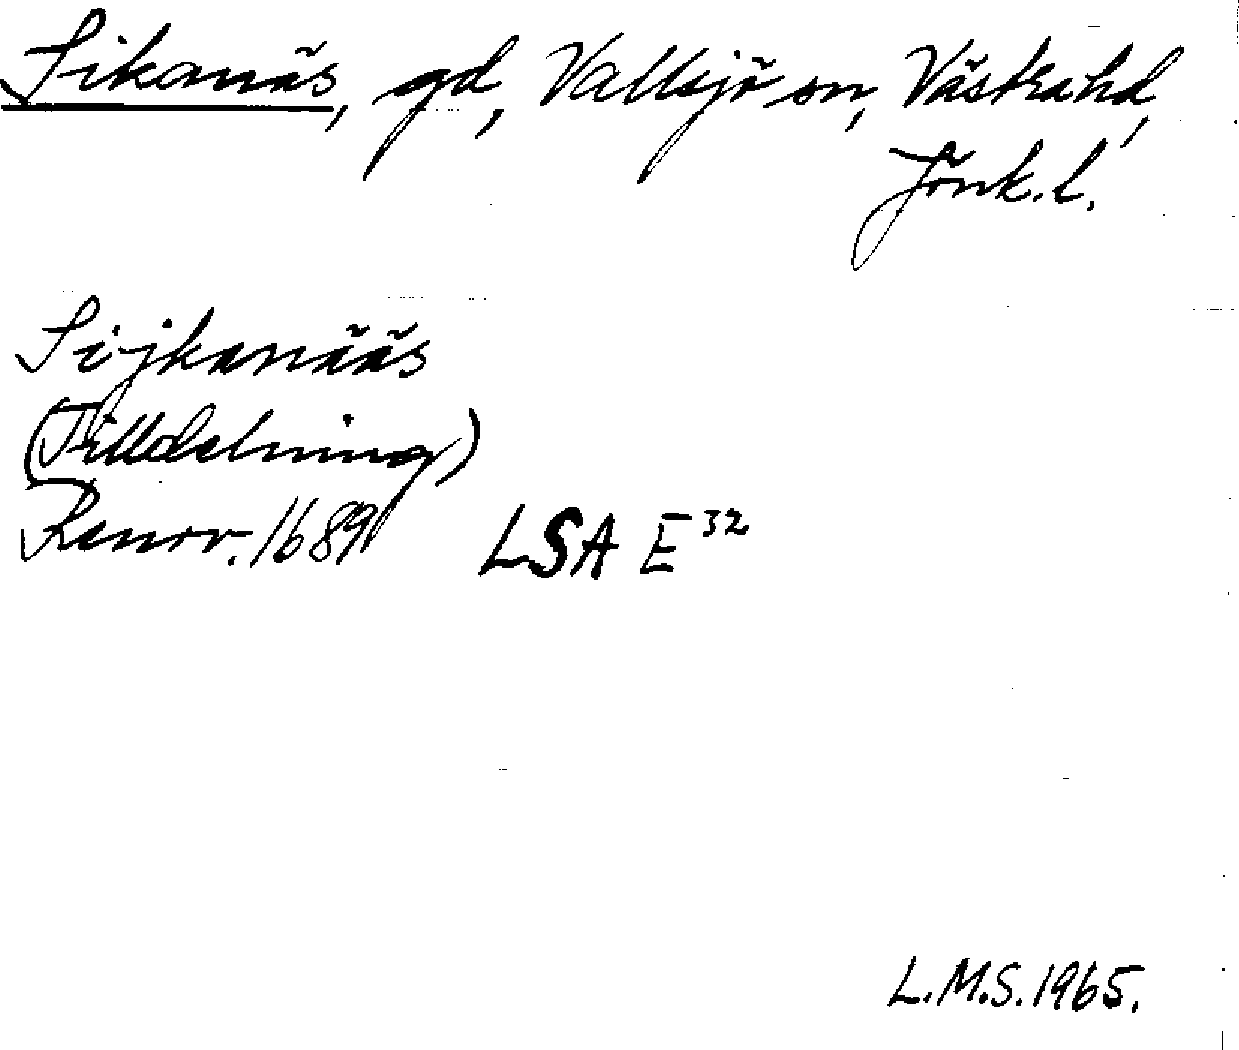 Sikanäs, gd, Vallsjö sn, Västra hd,
Jönk. l.
Sijkanääs
(Tilldelning)
Renov. 1689 LSA E 32
L.M.S. 1965.